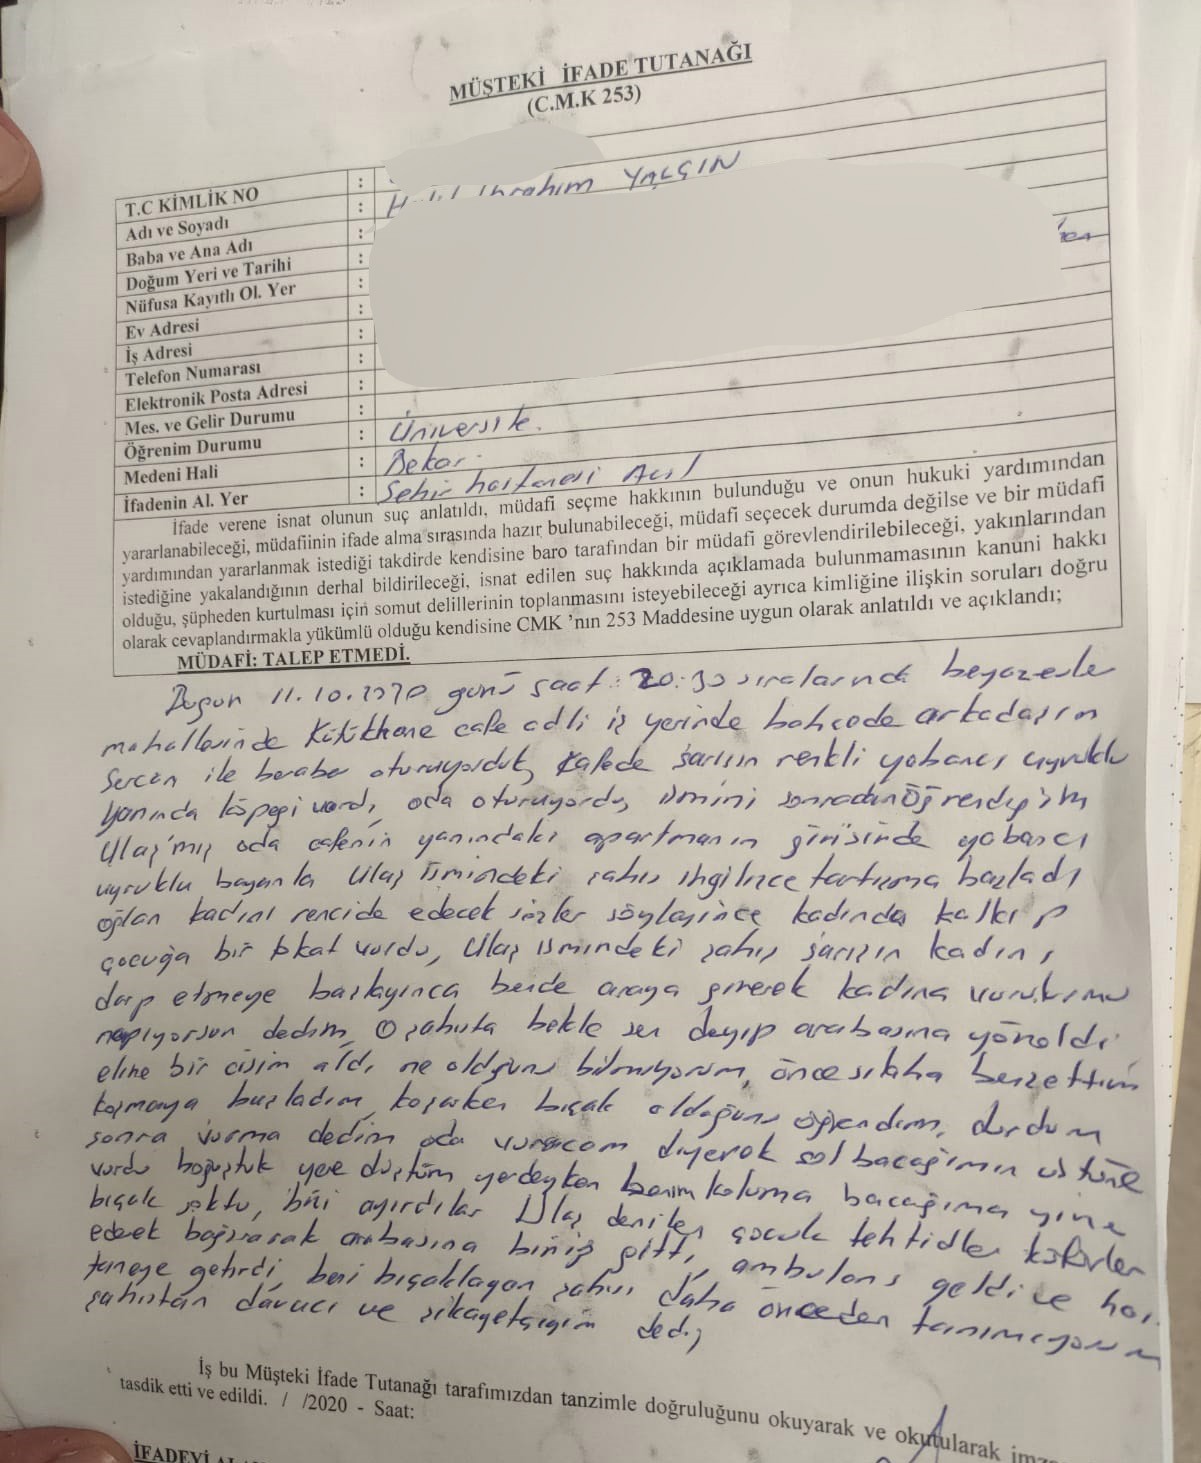 MÜŞTEKİ İFADE TUTANAĞI
(C.M.K 253)
T.C KİMLİK NO :
Adı ve Soyadı : İbrahim YALÇIN
Baba ve Ana Adı :
Doğum Yeri ve Tarihi :
Nüfusa Kayıtlı Ol. Yer :
Ev Adresi :
İş Adresi :
Telefon Numarası :
Elektronik Posta Adresi :
Mes. ve Gelir Durumu :
Öğrenim Durumu : Üniversite.
Medeni Hali : Bekar.
İfadenin Al. Yer : Şehir hastanesi Acil
İfade verene isnat olunun suç anlatıldı, müdafi seçme hakkının bulunduğu ve onun hukuki yardımından
yararlanabileceği, müdafiinin ifade alma sırasında hazır bulunabileceği, müdafi seçecek durumda değilse ve bir müdafi
yardımından yararlanmak istediği takdirde kendisine baro tarafından bir müdafi görevlendirilebileceği, yakınlarından
istediğine yakalandığının derhal bildirileceği, isnat edilen suç hakkında açıklamada bulunmamasının kanuni hakkı
olduğu, şüpheden kurtulması için somut delillerinin toplanmasını isteyebileceği ayrıca kimliğine ilişkin soruları doğru
olarak cevaplandırmakla yükümlü olduğu kendisine CMK 'nın 253 Maddesine uygun olarak anlatıldı ve açıklandı;
MÜDAFİ: TALEP ETMEDİ.
Bugün 11.10.2020 günü saat: 20:30 sıralarında beyazevle
mahallesinde Kütükhane cafe adlı iş yerinde bahçede arkadaşım
Sercan ile beraber oturuyorduk, Kafede sarışın renkli yabancı uyruklu
yanında köpeği vardı, oda oturuyordu, ismini sonradan öğrendiğim
Ulaş'mış oda cafenin yanındaki apartmanın girişinde yabancı
uyruklu bayanla Ulaş ismindeki şahıs ingilizce tartışma başladı
oğlan kadını rencide edecek sözler söyleyince kadında kalkıp
çocuğa bir tokat vurdu, Ulaş ismindeki şahıs sarışın kadını
darp etmeye başlayınca bende araya girerek kadına vurulurmu
napıyorsun dedim, O şahısta bekle sen deyip arabasına yöneldi
eline bir cisim aldı, ne olduğunu bilmiyorum, önce silaha benzettim
koşmaya başladım, koşarken bıçak olduğunu öğrendim, durdum
sonra vurma dedim oda vuracam diyerek sol bacağımın üstüne
vurdu boğuştuk yere düştüm yerdeyken benim koluma bacağıma yine
bıçak soktu, bizi ayırdılar Ulaş denilen çocuk tehtidler küfürler
ederek bağırarak arabasına binip gitti, ambulans geldi ve has
taneye getirdi, beni bıçaklayan şahsı daha önceden tanımıyorum
şahıstan davacı ve şikayetçiyim dedi,
İş bu Müşteki İfade Tutanağı tarafımızdan tanzimle doğruluğunu okuyarak ve okutularak
tasdik etti ve edildi. / /2020 - Saat: